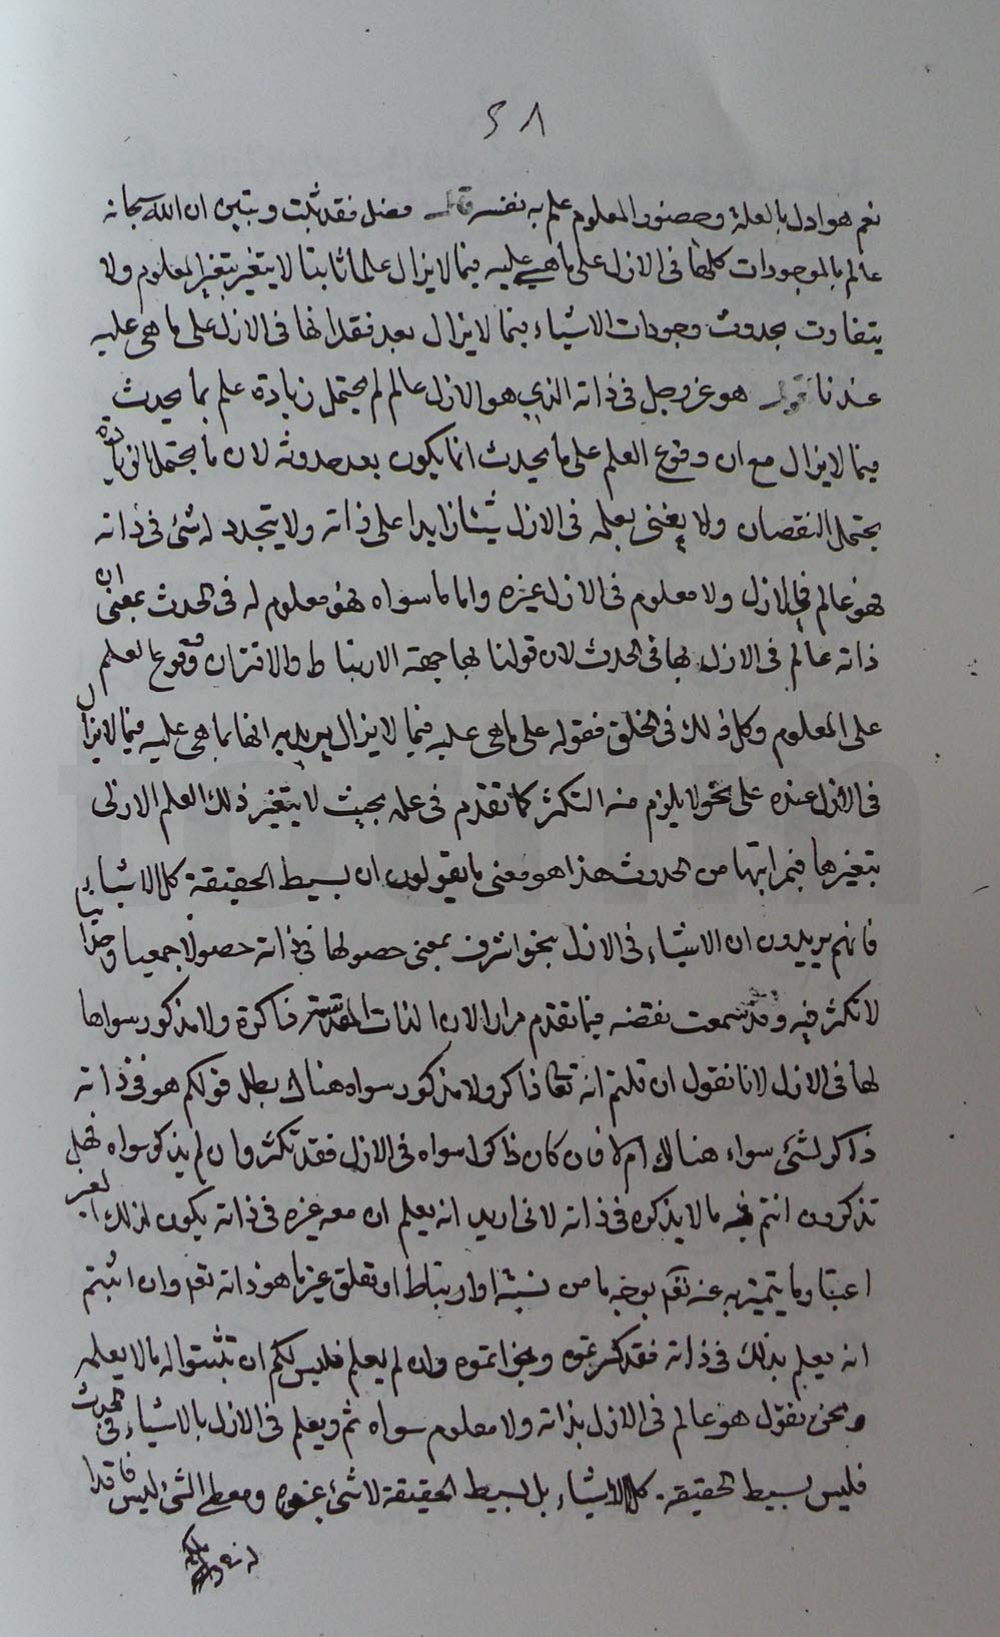 ٢٨
نعم هو ادل بالعلة وحضور المعلوم علم به نفسه قال فصل فقد ثبت وتبين ان الله سبحانه
عالم بالموجودات كلها فى الازل على ما هى عليه فيما لا يزال علما ثابتا لا يتغير بتغير المعلوم ولا
يتفاوت بحدوث وجودات الاشياء فيما لا يزال بعد فقدانها فى الازل على ما هى عليه
عندنا اقول هو عز وجل فى ذاته الذى هو الازل عالم لم يحتمل زيادة علم بما يحدث
فيما لا يزال مع ان وقوع العلم على ما يحدث انما يكون بعد حدوثه لان ما يحتمل الزيادة
يحتمل النقصان ولا يعنى بعلمه فى الازل شيئا زايدا على ذاته ولا يتجدد له شئ فى ذاته
فهو عالم فى الازل ولا معلوم فى الازل غيره واما ما سواه فهو معلوم له فى الحدث بمعنى ان
ذاته عالم فى الازل بها فى الحدث لان قولنا بها جهة الارتباط والاقتران وقوع العلم
على المعلوم وكل ذلك فى الخلق فقوله على ما هى عليه فيما لا يزال يريد به انها بما هى عليه فيما لا يزال
فى الازل عنده على نحو لا يلزم منه التكثر كما تقدم فى علمه بحيث لا يتغير ذلك العلم الازلى
بتغيرها فى مراتبها من الحدوث هذا هو معنى ما يقولون ان بسيط الحقيقة كل الاشياء
فانهم يريدون ان الاشياء فى الازل بنحو اشرف بمعنى حصولها فى ذاته حصولا جمعيا وحدانيا
لا تكثر فيه وقد سمعت نقضه فيما تقدم مرارا لان الذات المقدسة ذاكرة ولا مذكور سواها
لها فى الازل لانا نقول ان قلتم انه تعالى ذاكر ولا مذكور سواه هناك بطل قولكم هو فى ذاته
ذاكر لشئ سواه هناك ام لا فان كان ذاكرا سواه فى الازل فقد تكثر وان لم يذكر سواه فهل
تذكرون انتم فيه ما لا يذكره فى ذاته لانى اريد انه يعلم ان معه غيره فى ذاته يكون لذلك الغير
اعتبار ما يتميز به عنه تعالى بوجه ما من نسبة او ارتباط او تعلق غير ما هو ذاته تعالى وان اثبتم
انه يعلم بذلك فى ذاته فقد كثرتموه وجزأتموه وان لم يعلم فليس لكم ان تثبتوا له ما لا يعلمه
ونحن نقول هو عالم فى الازل بذاته ولا معلوم سواه ثم ويعلم فى الازل بالاشياء فى الحدث
فليس بسيط الحقيقة كل الاشياء بل بسيط الحقيقة لا شئ غيره ومعطى الشئ ليس فاقدا